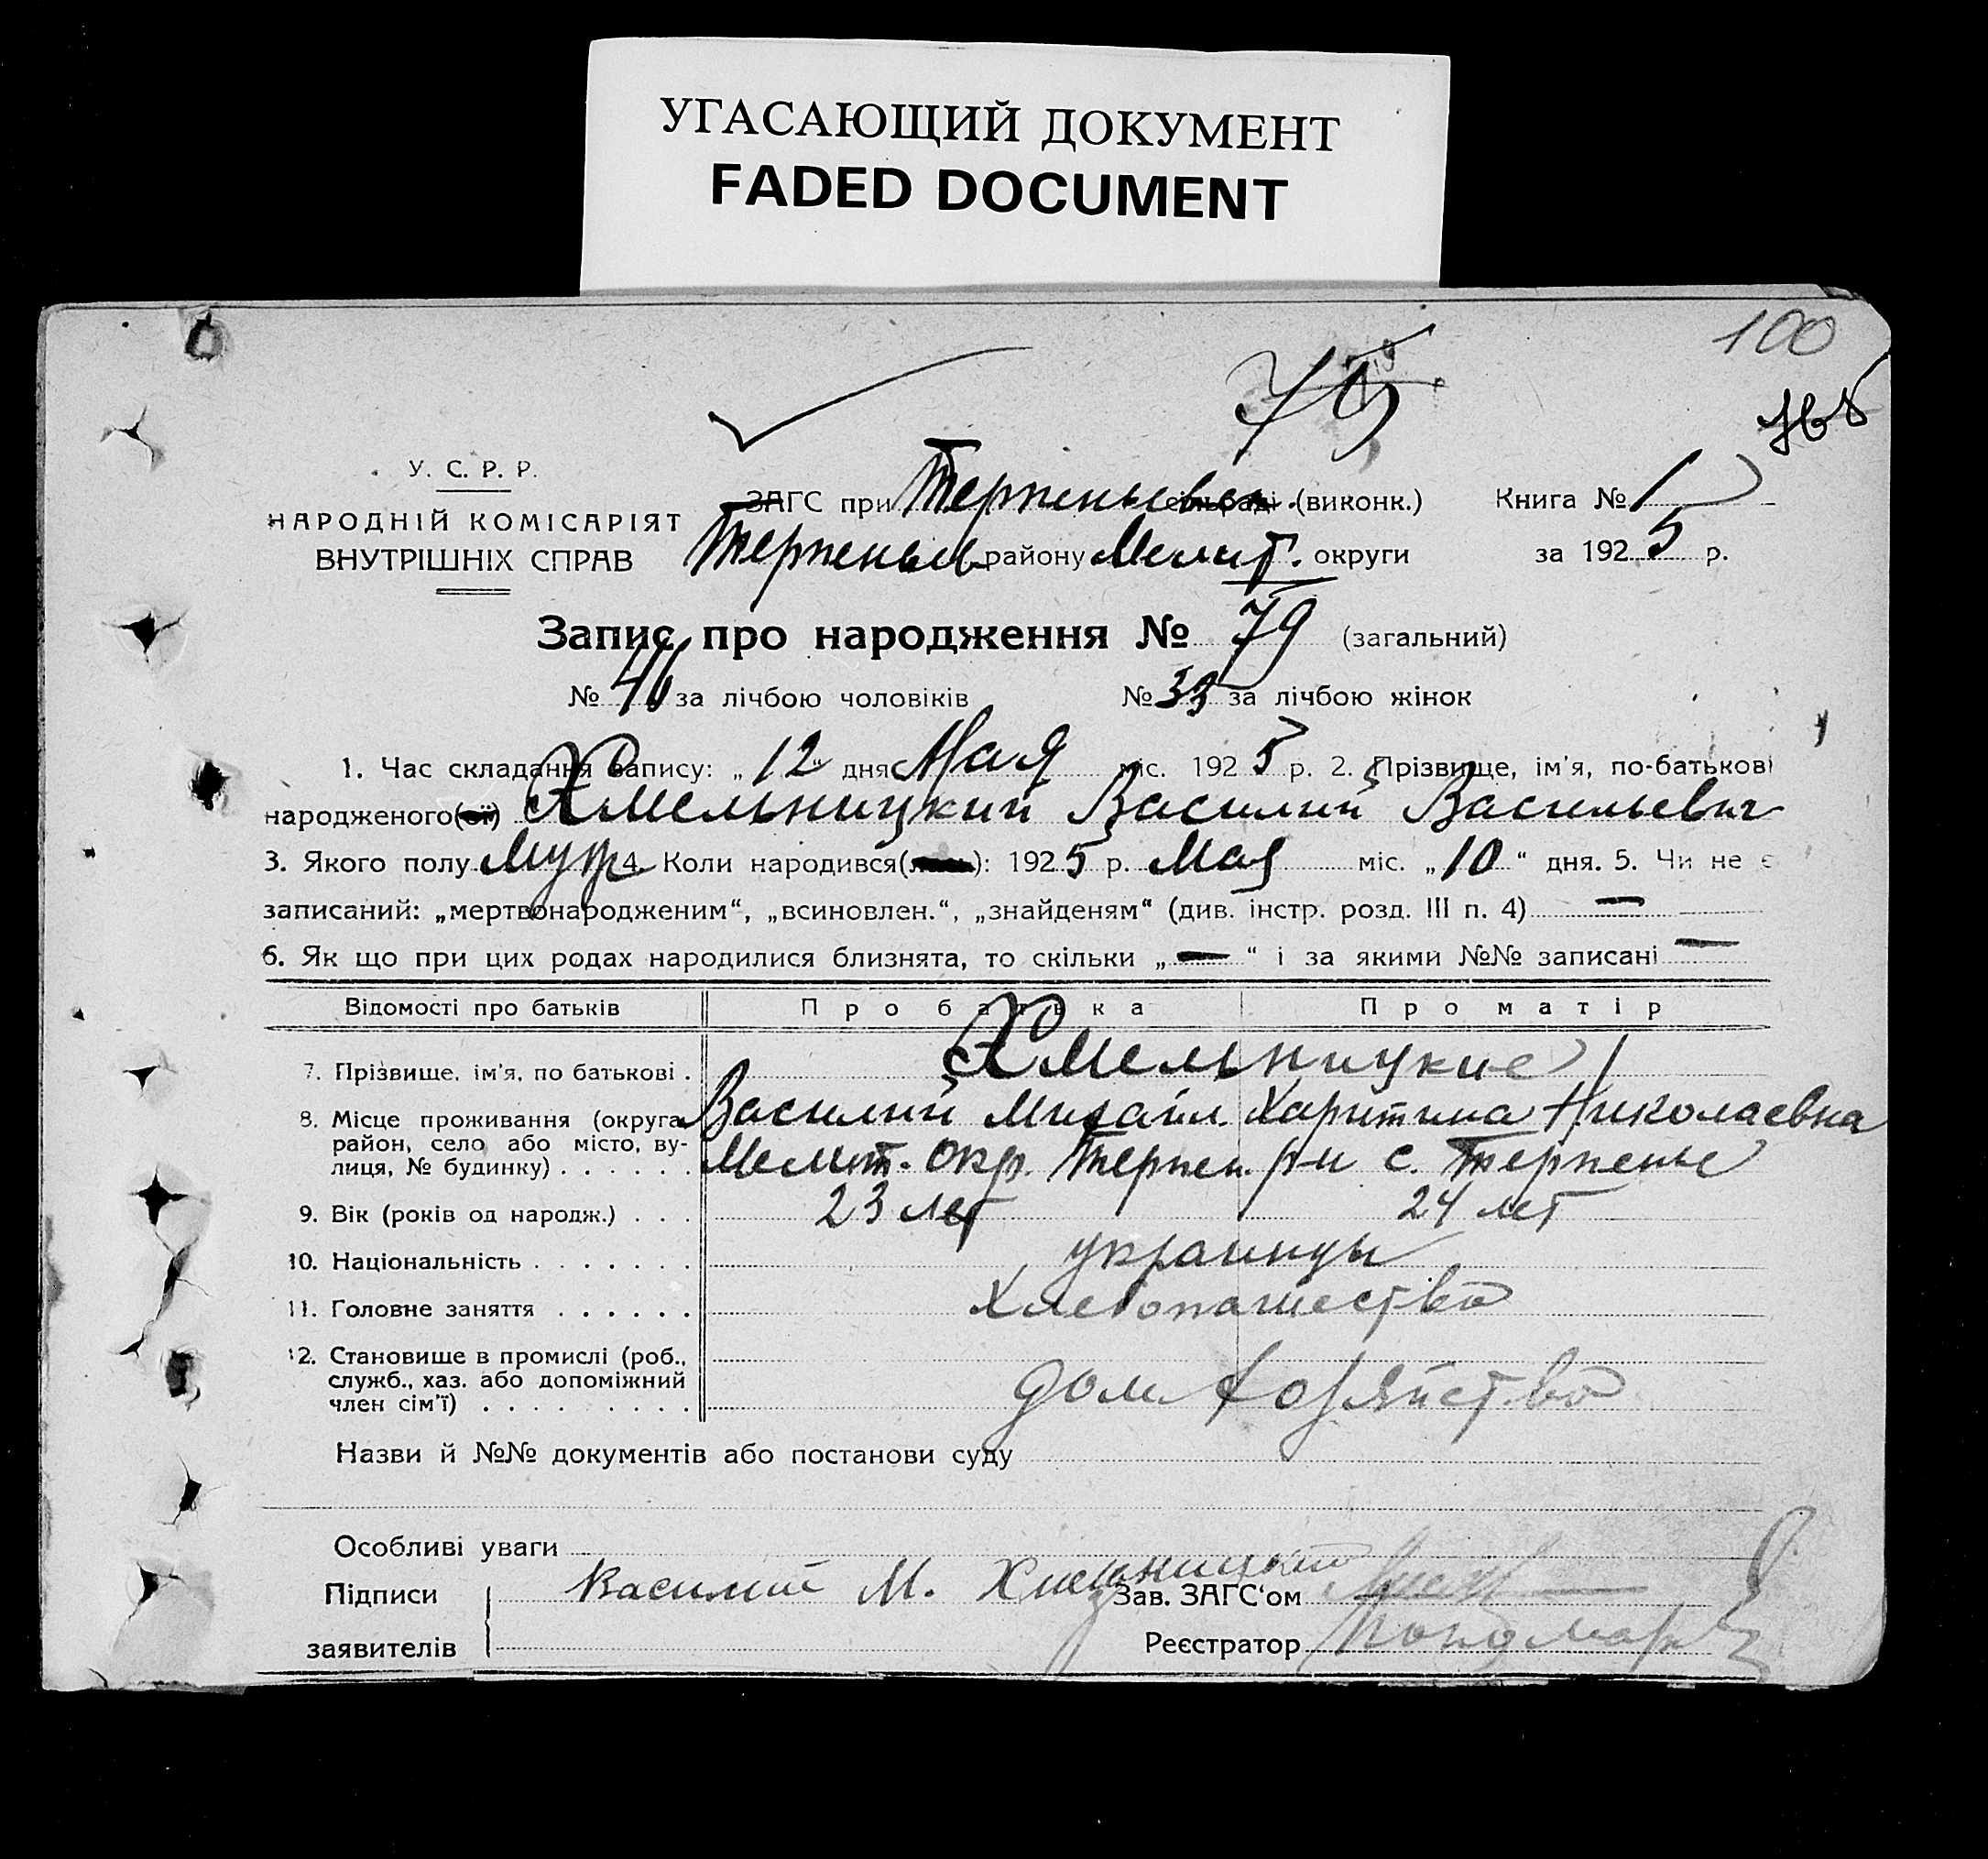 УГАСАЮЩИЙ ДОКУМЕНТ
FADED DOCUMENT
100
У. С. Р. Р.
НАРОДНІЙ КОМІСАРІЯТ
ВНУТРІШНІХ СПРАВ
ЗАГС при Терпеньевск. сільраді (виконк.) Книга № 1
Терпеньев району Мелит. округи за 1925 р.
Запис про народження № 79 (загальний)
№ 46 за лічбою чоловіків № 33 за лічбою жінок
1. Час складання запису: „12“ дня Мая міс. 1925 р. 2. Прізвище, ім'я, по-батькові
народженого(ої) Хмельницкий Василий Васильевич
3. Якого полу Муж 4. Коли народився( ): 1925 р. Мая міс. „10“ дня. 5. Чи не є
записаний: „мертвонародженим“, „всиновлен.“, „знайденям“ (див. інстр. розд. III п. 4) —
6. Як що при цих родах народилися близнята, то скільки „—“ і за якими №№ записані —
Відомості про батьків Про батька Про матір
7. Прізвище, ім'я, по батькові . Хмельницкие
Василий Михайл. Харитина Николаевна
8. Місце проживання (округа,
район, село або місто, ву-
лиця, № будинку) . . . . . . Мелит. Окр. Терпен. р-н с. Терпенье
9. Вік (років од народж.) . . . 23 лет 24 лет
10. Національність . . . . . . . украинцы
11. Головне заняття . . . . . . Хлебопашество
12. Становище в промислі (роб.,
служб., хаз. або допоміжний
член сім'ї) . . . . . . . . . дом хозяйство
Назви й №№ документів або постанови суду
Особливі уваги
Підписи Василий М. Хмельницкий Зав. ЗАГС'ом
заявителів Реєстратор